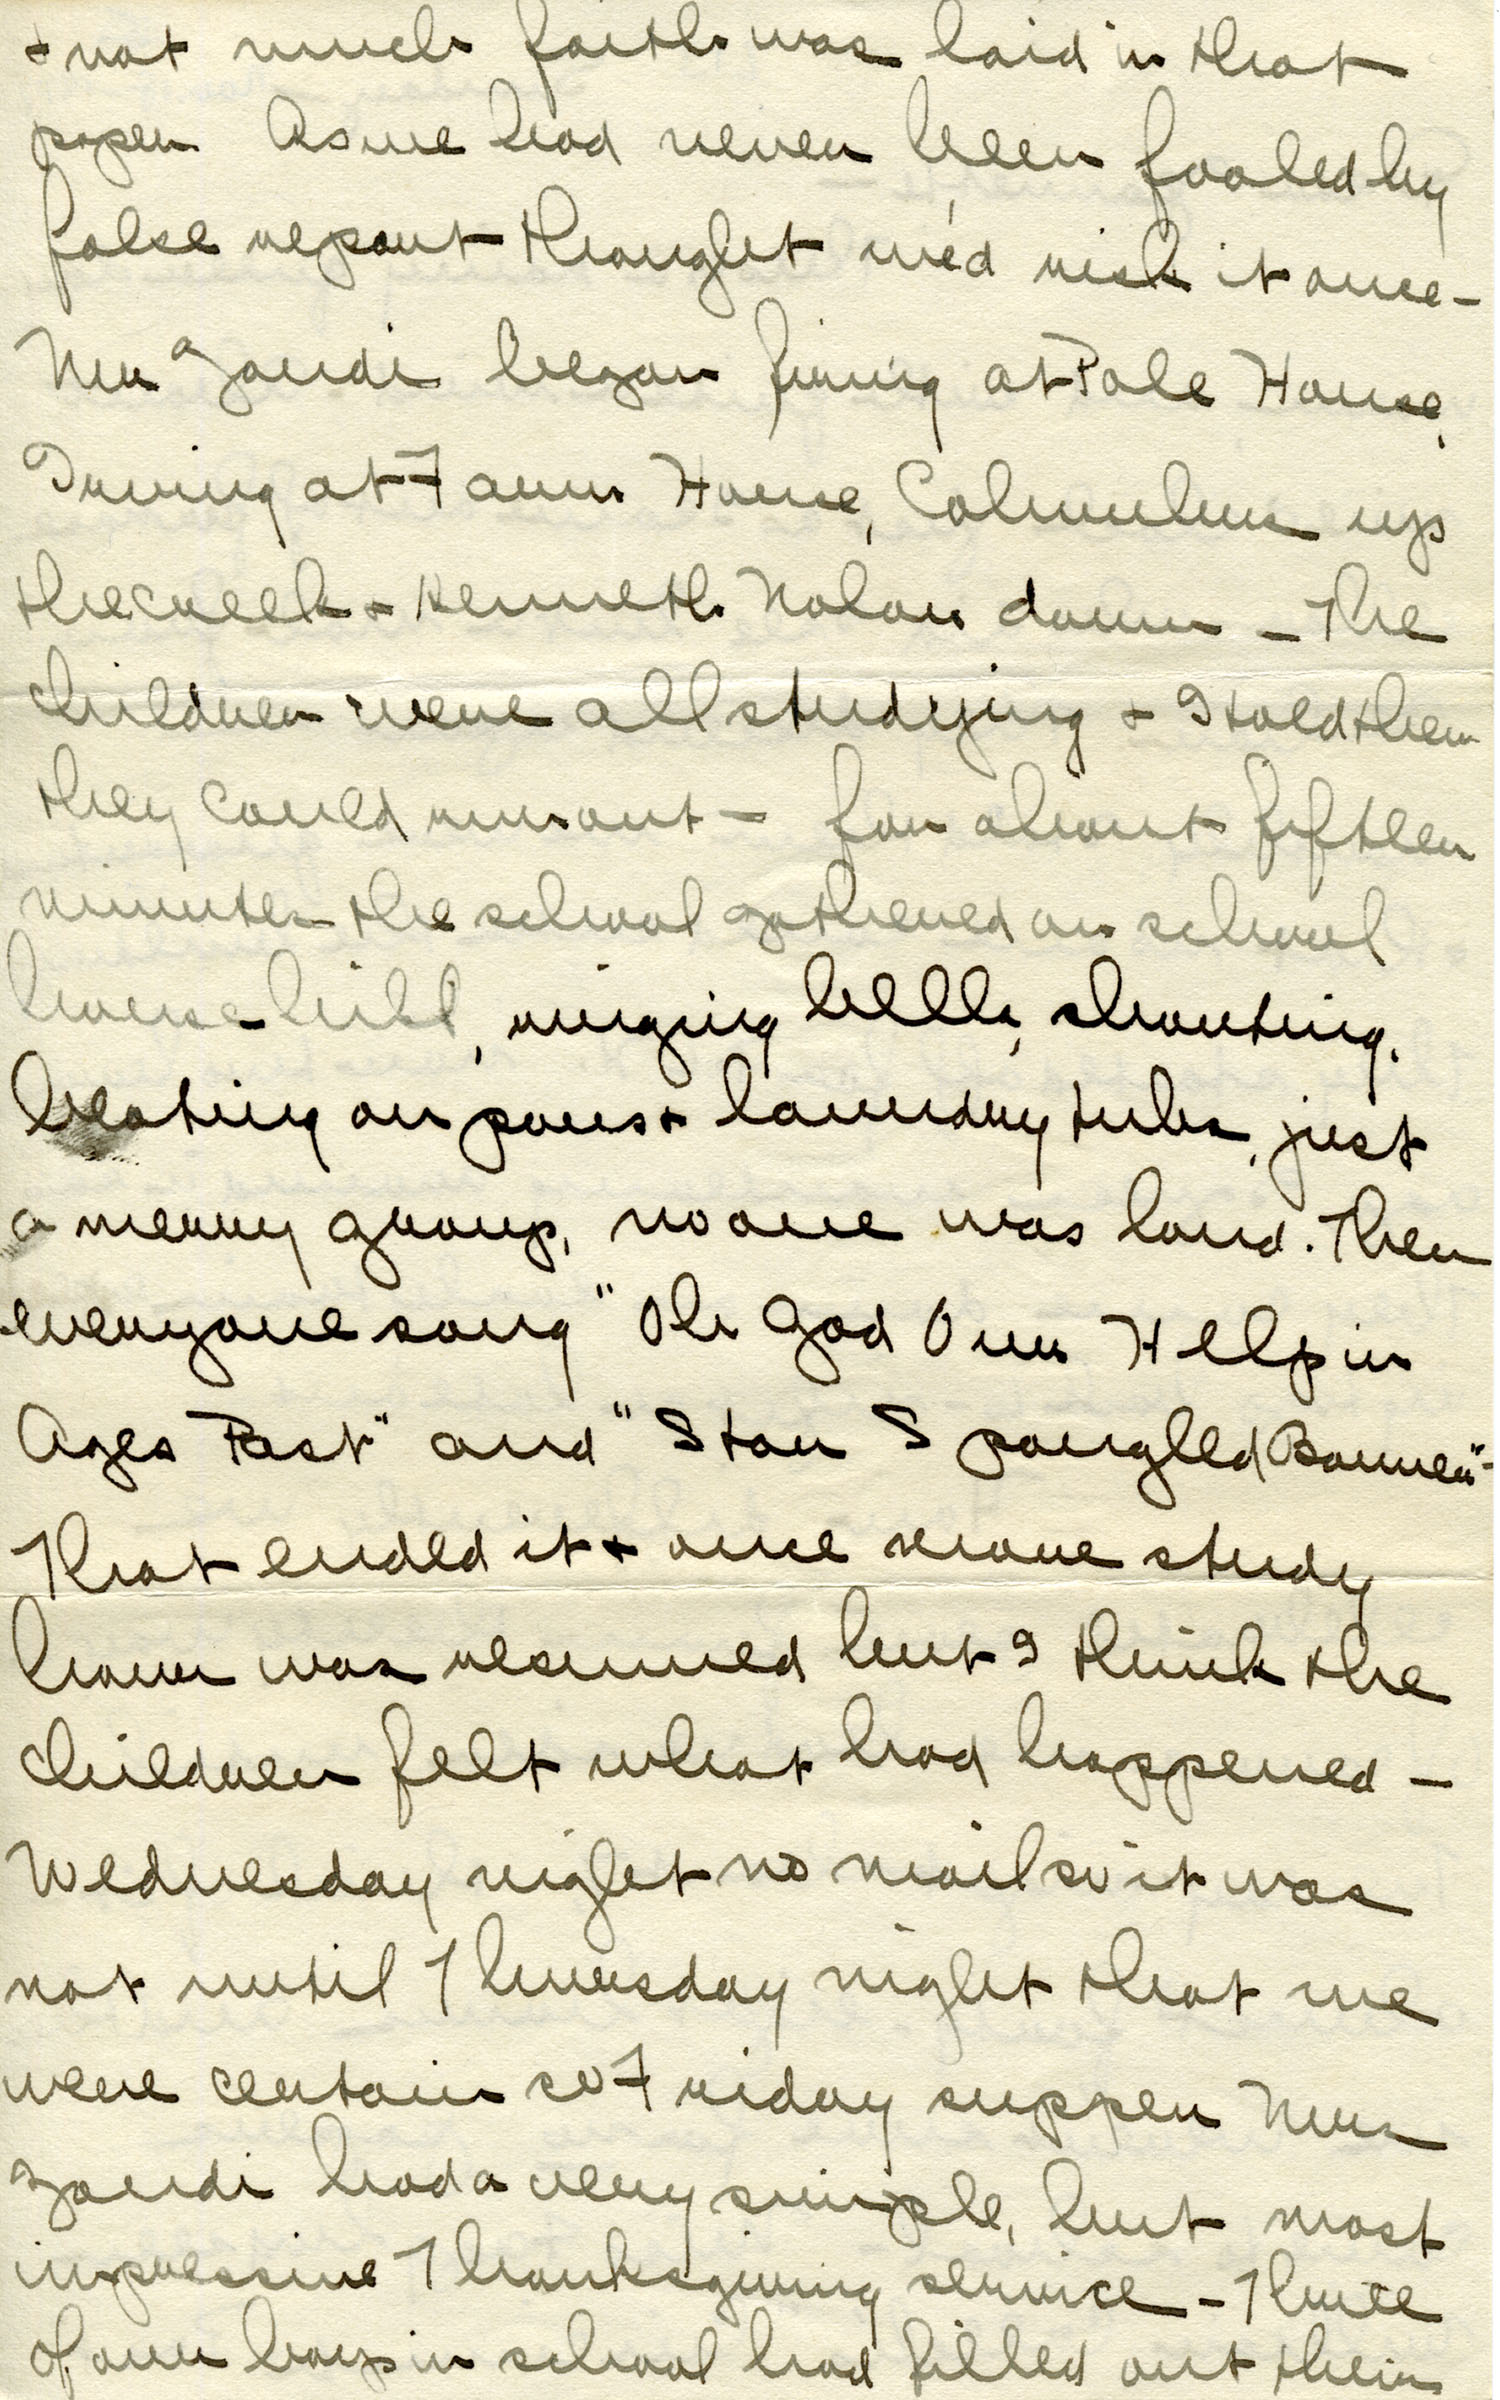 + not much faith was laid in that
paper. As we had never been fooled by
false report thought we'd risk it once -
Mr Zande began firing at Pole House,
Irving at Farm House, Columbus up
the creek + Kenneth Nolan down - The
children were all studying + I told them
they could run out - for about fifteen
minutes the school gathered on school
house hill, ringing bells, shouting,
beating on pans + laundry tubs, just
a merry group, no one was loud. Then
everyone sang "Oh God Our Help in
Ages Past" and "Star Spangled Banner" -
That ended it + once more study
hour was resumed but I think the
children felt what had happened -
Wednesday night no mail so it was
not until Thursday night that we
were certain so Friday supper Mrs
Zande had a very simple, but most
impressive Thanksgiving service - Three
of our boys in school had filled out their